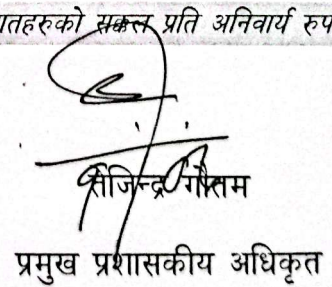 तहरुको सक्कल प्रति अनिवार्य रुप
तेजिन्द्र गौतम
प्रमुख प्रशासकीय अधिकृत